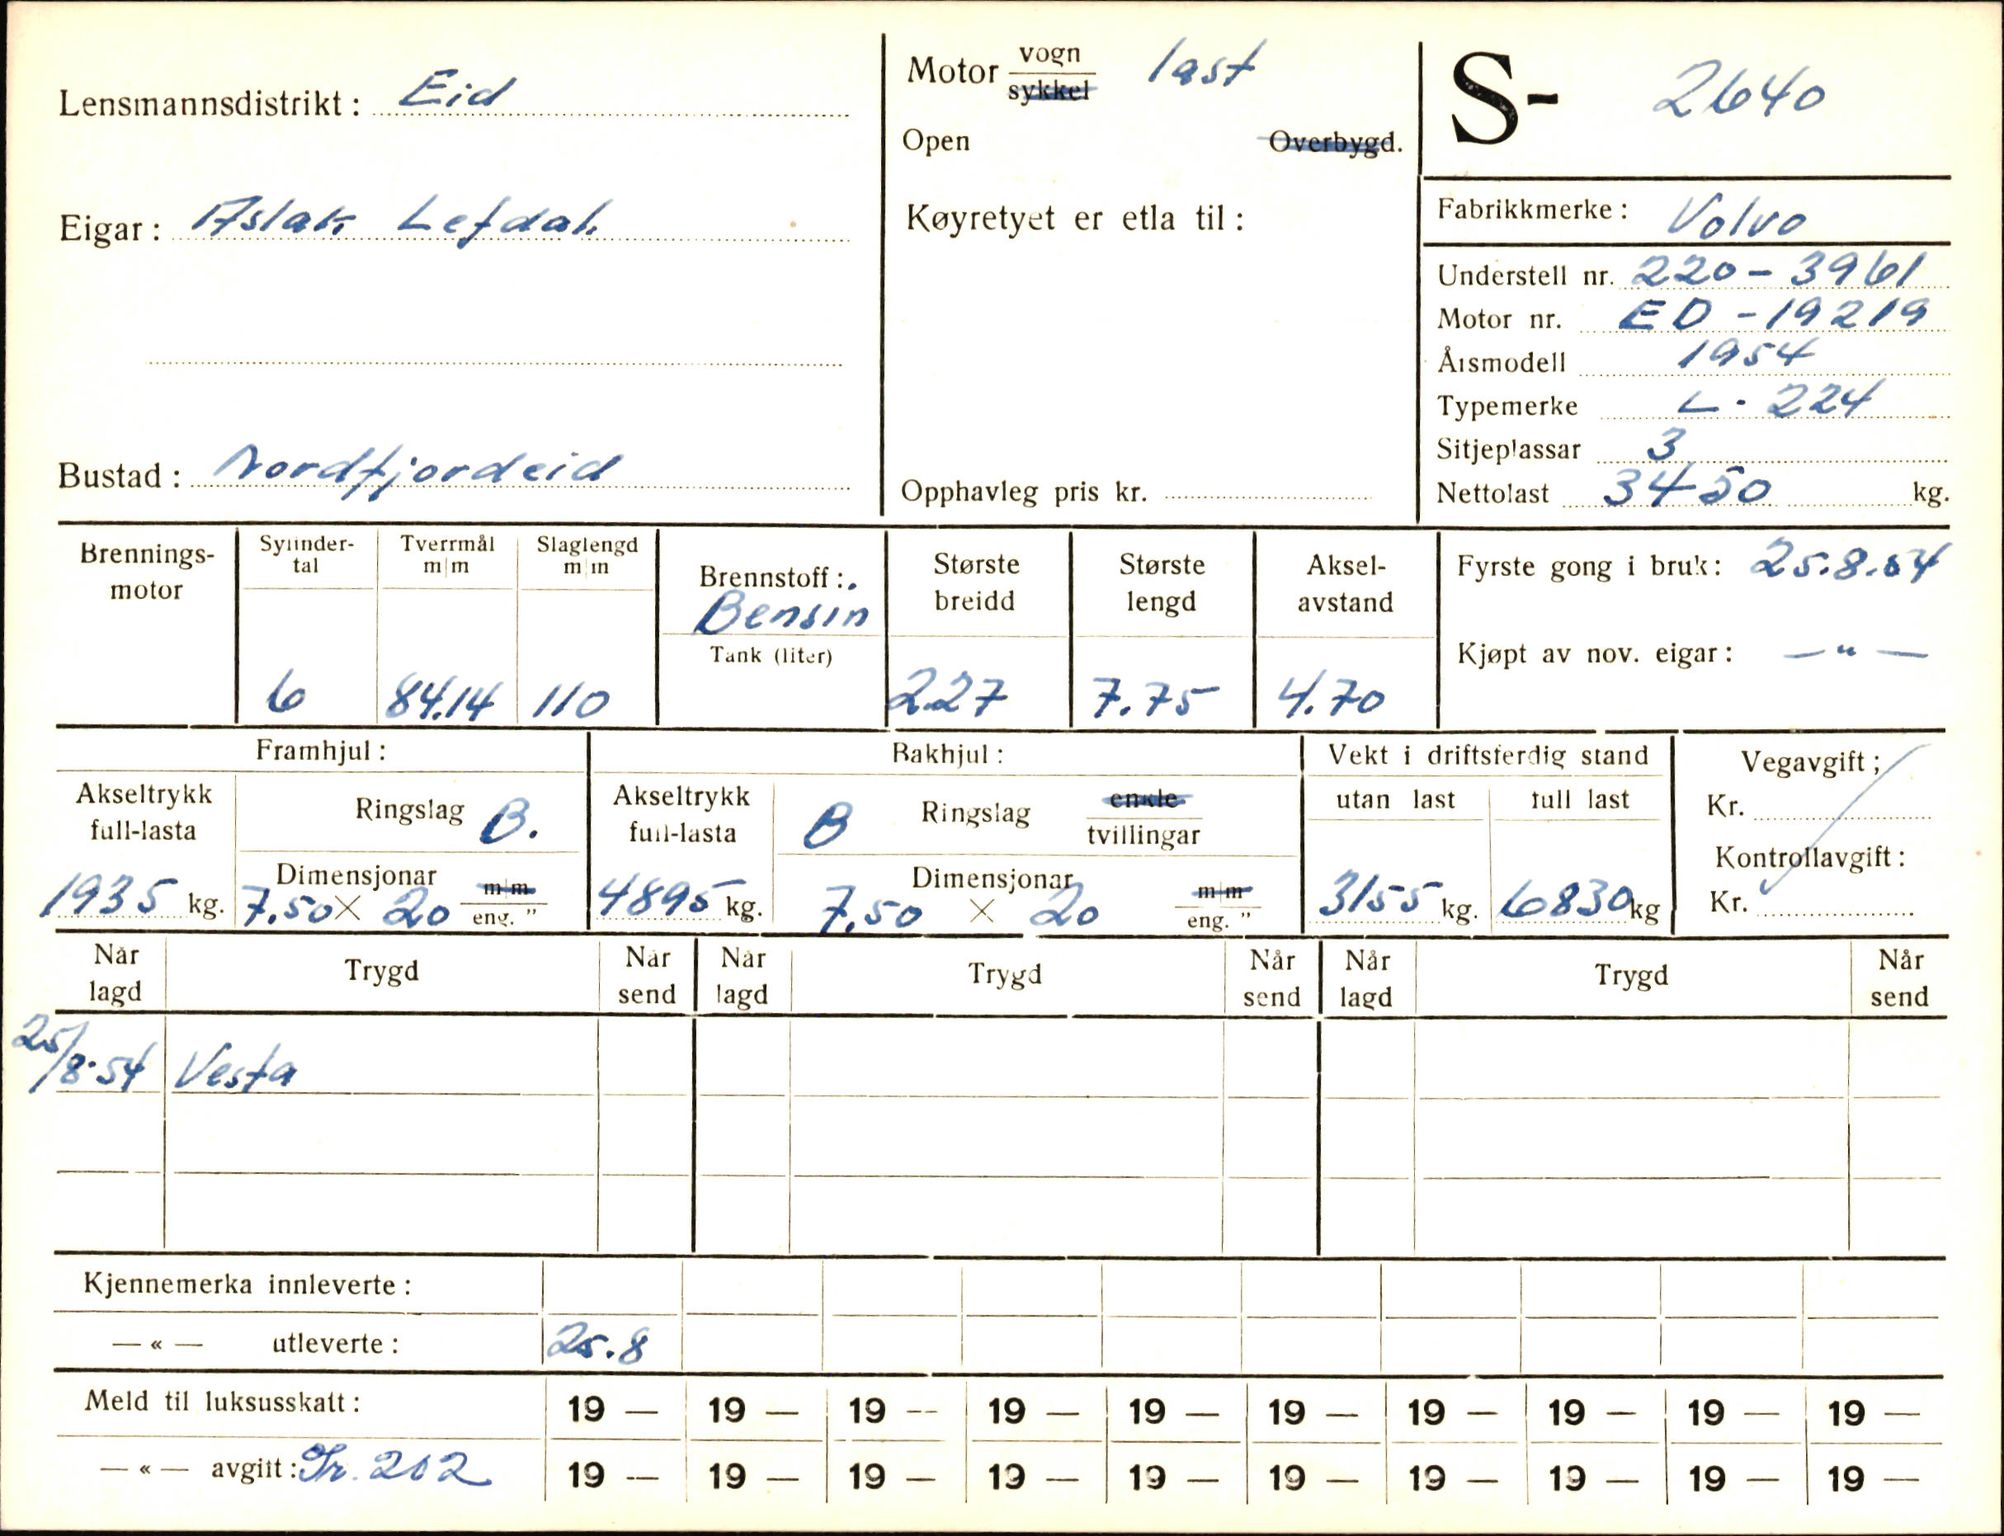 Lensmannsdistrikt: Eid
Eigar: Aslak Lefdal
Bustad: Nordfjordeid
Motor vogn last
sykkel
Open Overbygd.
Køyretyet er etla til:
Opphavleg pris kr.
S- 2640
Fabrikkmerke: Volvo
Understell nr. 220-3961
Motor nr. ED-19219
Årsmodell 1954
Typemerke L-224
Sitjeplassar 3
Nettolast 3450 kg.
Brennings-
motor
Sylinder-
tal
6
Tverrmål
m/m
84.14
Slaglengd
m/m
110
Brennstoff:
Bensin
Tank (liter)
Største
breidd
2.27
Største
lengd
7.75
Aksel-
avstand
4.70
Fyrste gong i bruk: 25.8.54
Kjøpt av nov. eigar: — " —
Framhjul:
Akseltrykk
full-lasta
1935 kg.
Ringslag B.
Dimensjonar m/m
7.50 × 20 eng. "
Bakhjul:
Akseltrykk
full-lasta
4895 kg.
B Ringslag enkle
tvillingar
Dimensjonar m/m
7.50 × 20 eng. "
Vekt i driftsferdig stand
utan last full last
3155 kg. 6830 kg
Vegavgift;
Kr.
Kontrollavgift:
Kr.
Når
lagd Trygd Når
send Når
lagd Trygd Når
send Når
lagd Trygd Når
send
25/8-54 Vesta
Kjennemerka innleverte:
— « — utleverte: 25.8
Meld til luksusskatt: 19 — 19 — 19 — 19 — 19 — 19 — 19 — 19 — 19 — 19 —
— « — avgift: 202 19 — 19 — 19 — 19 — 19 — 19 — 19 — 19 — 19 — 19 —